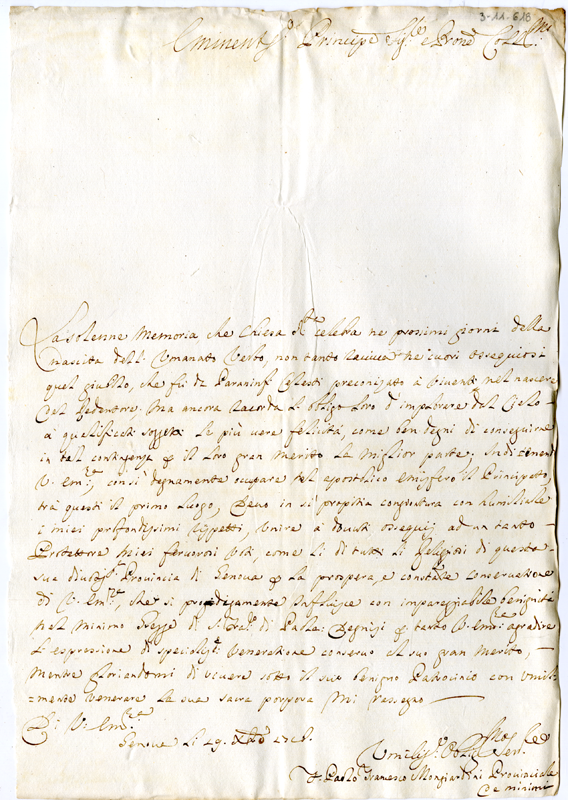 3-11-618
Eminent.mo Principe Sig.re e Pron.e Col.mo
La solenne Memoria che Chiesa S.ta celebra ne prossimi giorni della
nascita dell' Umanato Verbo, non tanto ravviva ne cuori ossequiosi
quel giubilo, che fù da Paraninfi Celesti preconizato à viventi nel nascere
del Redentore. Ma ancora ricorda l'obligo loro d'impetrare dal Cielo
a qualificati soggetti le più vere felicità, come ben degni di conseguire
in tal contingenza p il loro gran merito la miglior parte.
V. Em.za così degnamente occupare nel apostolico emisfero il Principato,
trà questi il primo luogo, devo in sì propitia congiontura con humiliarle
i miei profondissimi rispetti, unire a ossequij ad un tanto
Protettore miei fervorosi voti, come li di tutti li Religiosi di questa
sua Provincia di Genova p la prospera, e constante conservatione
di V. Em.za, che si influisce con impareggiabile benignità
nel minimo Gregge di S. Fra.co di Paola: Degnisi p tanto V. Em.za agradire
l'espressione di venerazione conservo al suo gran merito,
mentre gloriandomi di vivere sotto il suo benigno Patrocinio con umil-
=mente venerare la sua sacra porpora mi rassegno
Di V. Em.za
Genova li 29.
Umiliss.o Obl.mo Ser.re
F. Paolo Francesco Mongiardini Provinciale
de minimi